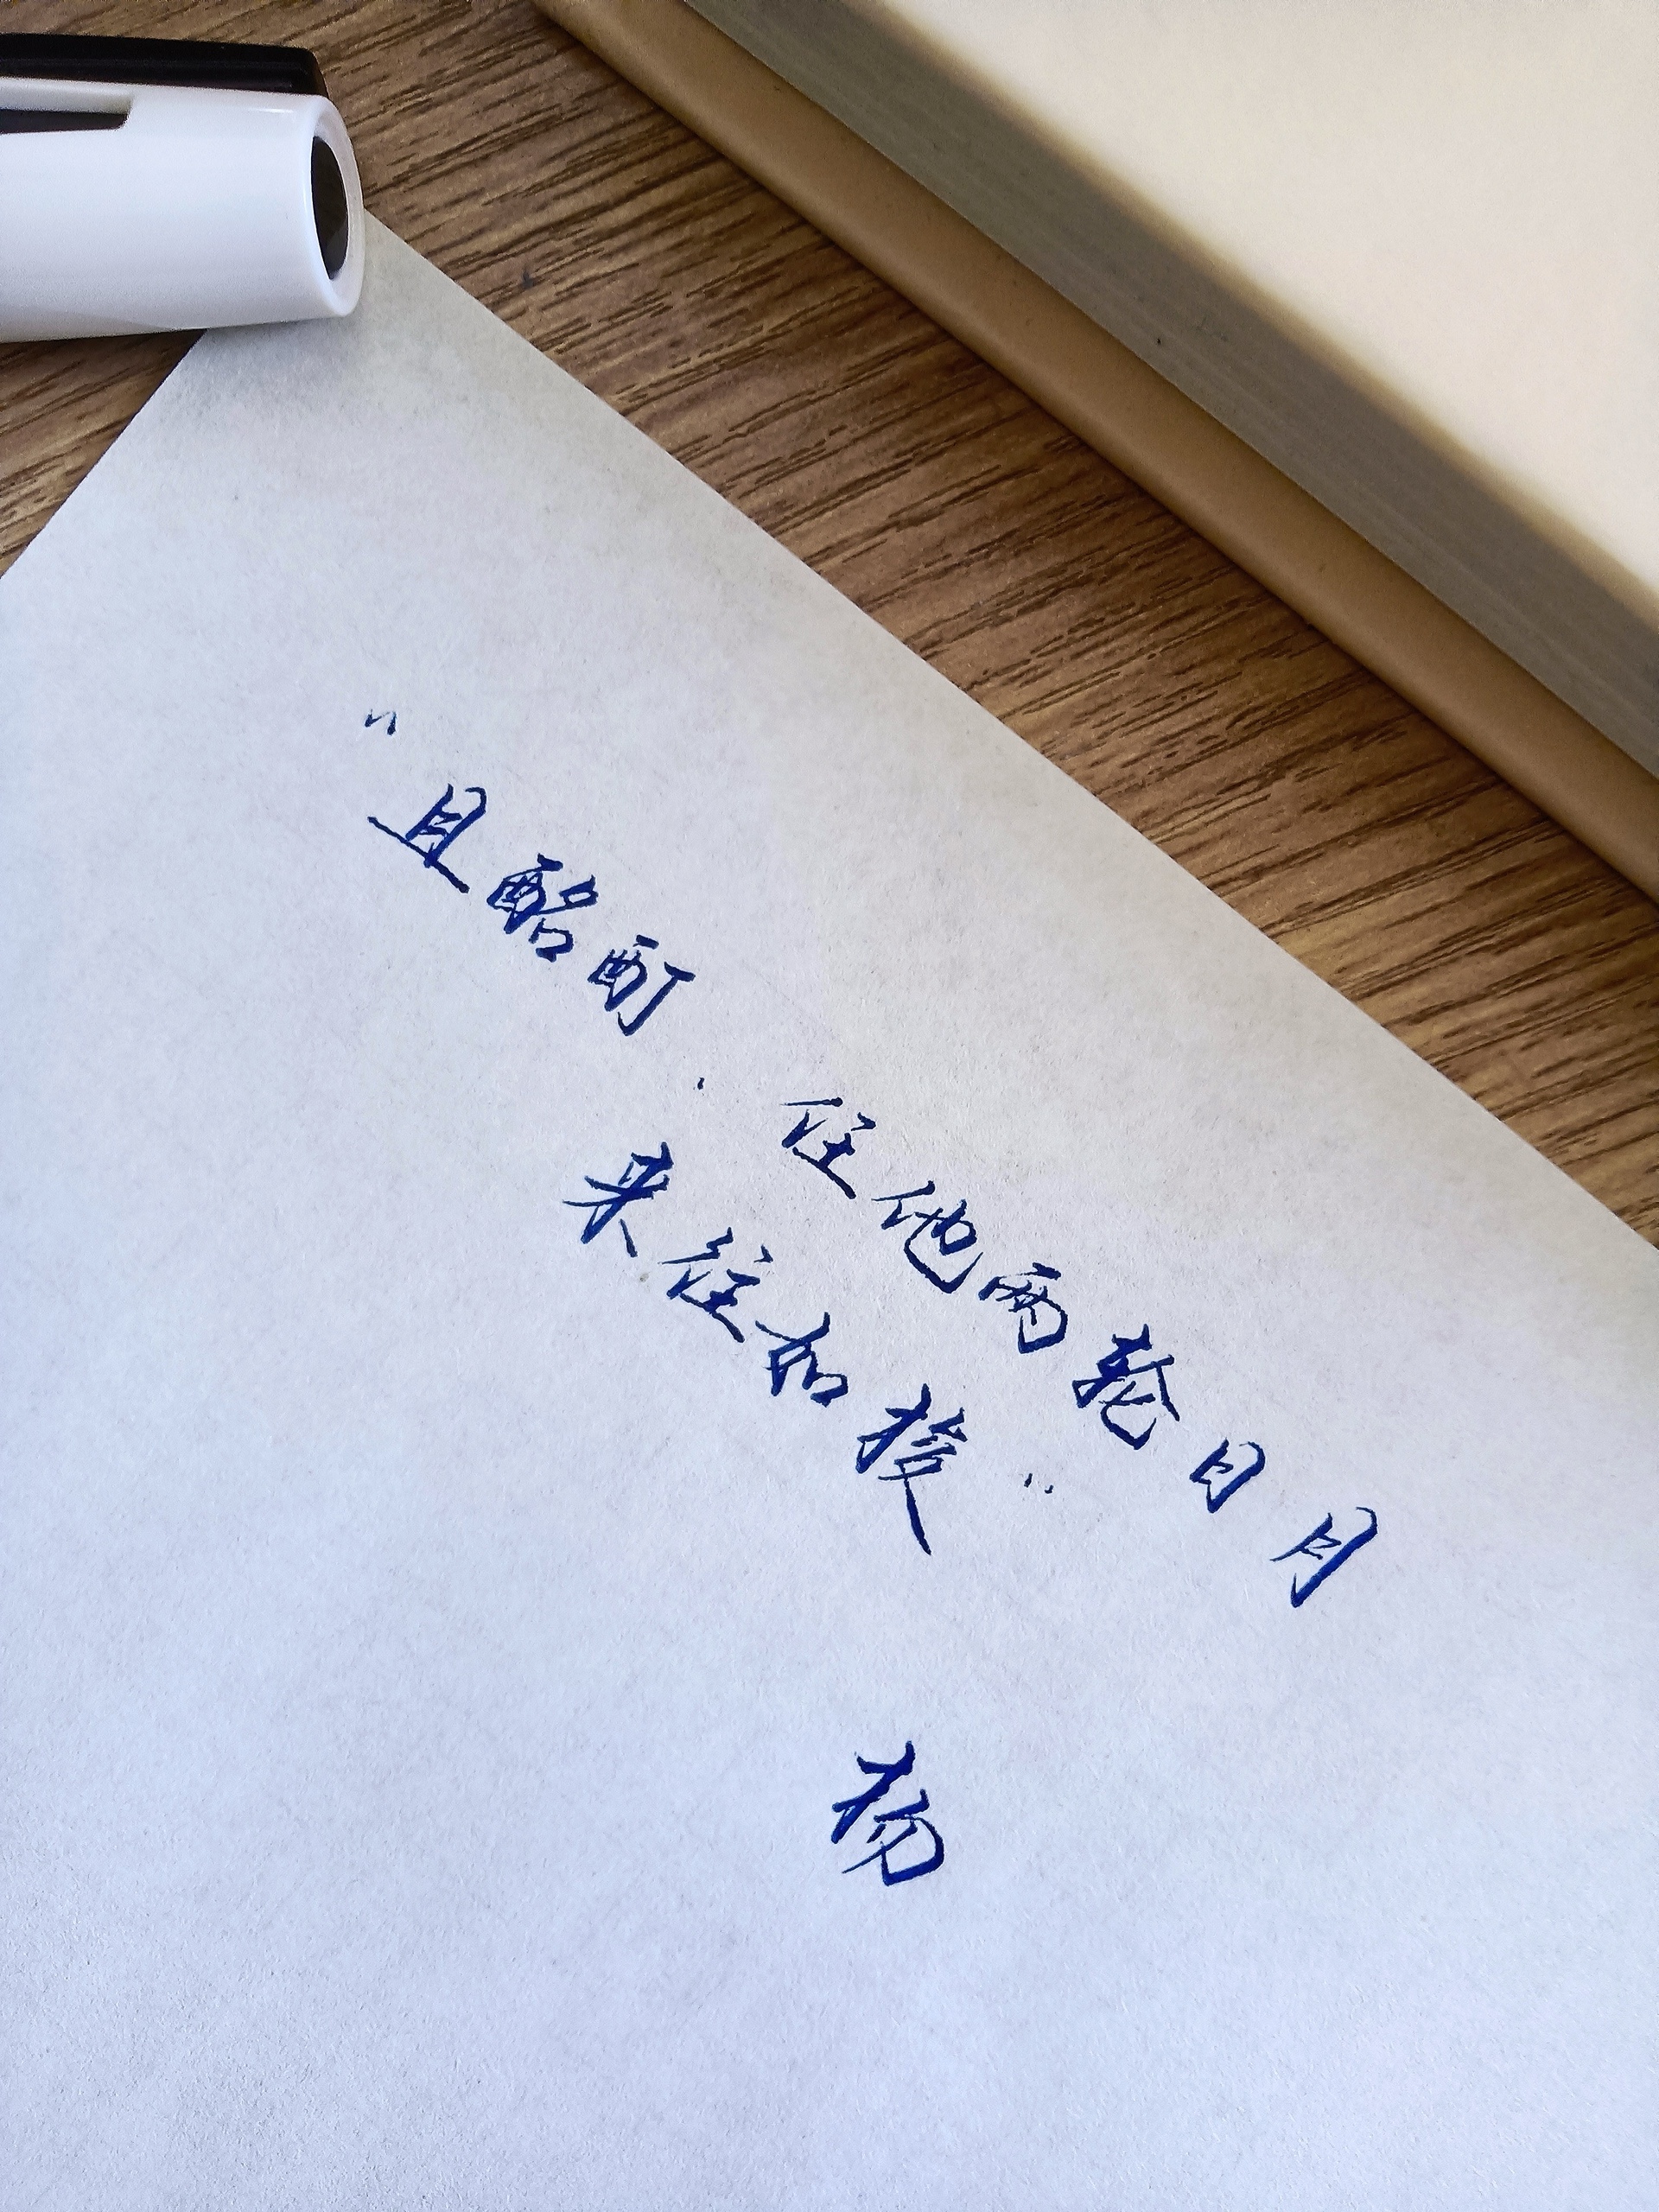 “且酩酊，任他两轮日月
来往如梭”
杨